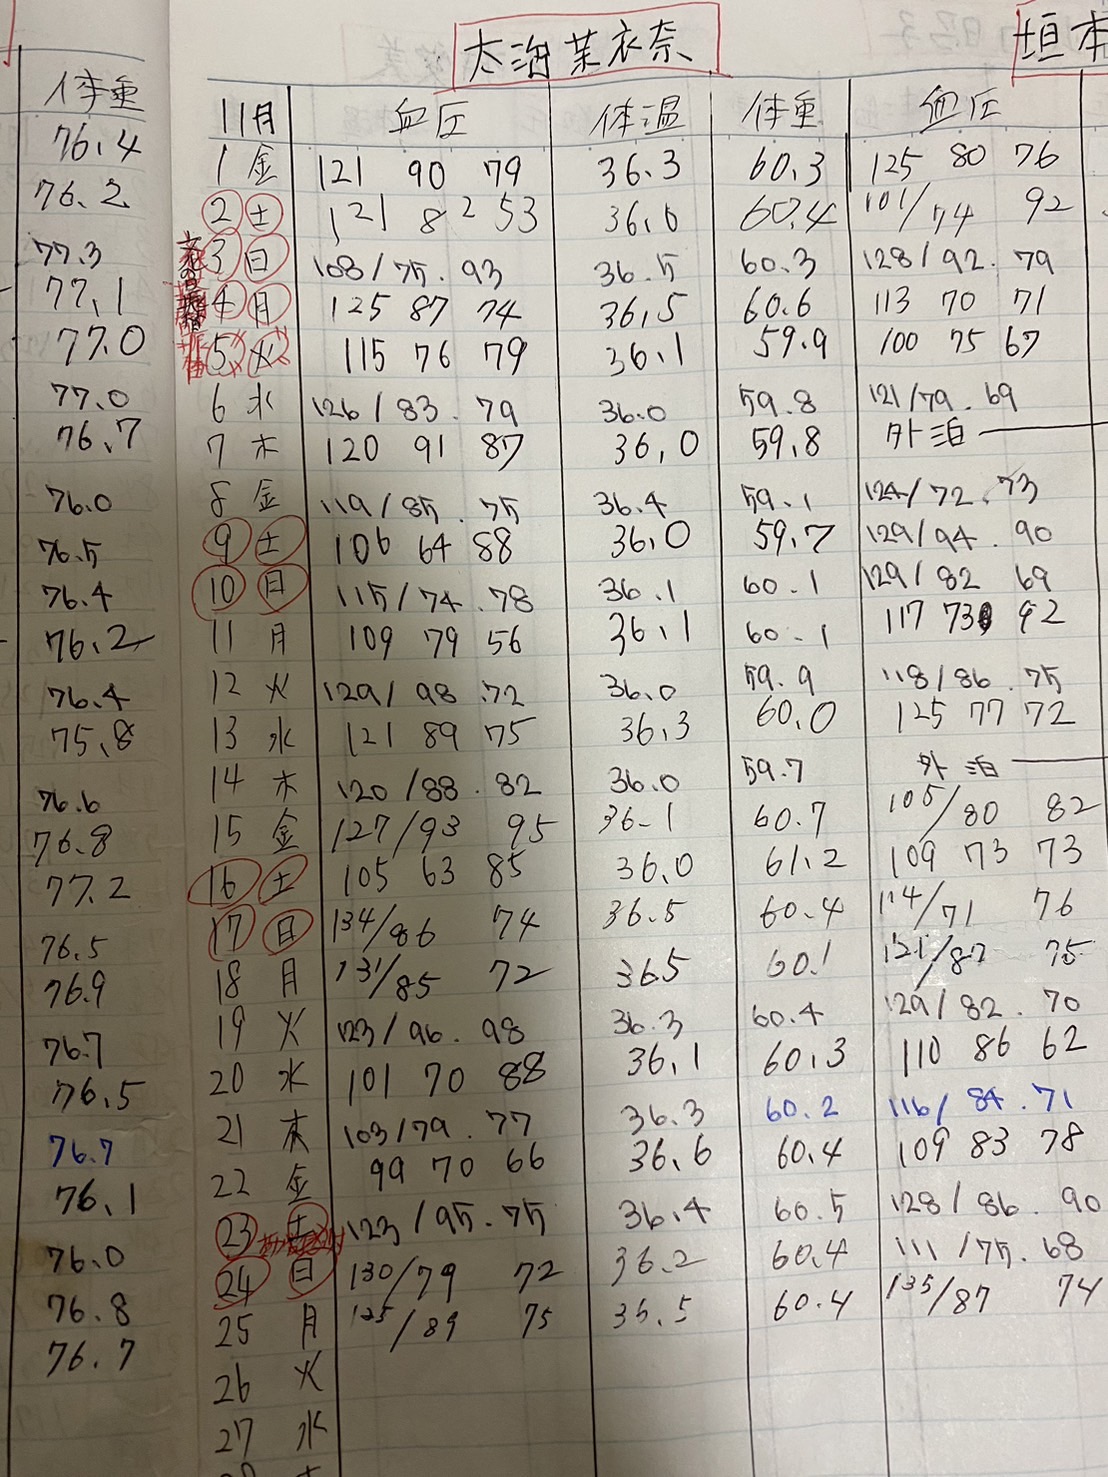 太海茉衣奈 垣本
体重 11月 血圧 体温 体重 血圧
76.4 1 金 121 90 79 36.3 60.3 125 80 76
76.2 2 土 121 82 53 36.0 60.4 101/74 92
77.3 3 日 108/75.93 36.5 60.3 128/92.79
77.1 4 月 125 87 74 36.5 60.6 113 70 71
77.0 5 火 115 76 79 36.1 59.9 100 75 67
77.0 6 水 126/83.79 36.0 59.8 121/79.69
76.7 7 木 120 91 87 36.0 59.8 外泊
76.0 8 金 119/85.75 36.4 59.1 124/72.73
76.5 9 土 106 64 88 36.0 59.7 129/94.90
76.4 10 日 115/74.78 36.1 60.1 129/82 69
76.2 11 月 109 79 56 36.1 60.1 117 73 92
76.4 12 火 129/98.72 36.0 59.9 118/86.75
75.8 13 水 121 89 75 36.3 60.0 125 77 72
76.6 14 木 120/88.82 36.0 59.7 外泊
76.8 15 金 127/93 95 36.1 60.7 105/80 82
77.2 16 土 105 63 85 36.0 61.2 109 73 73
76.5 17 日 134/86 74 36.5 60.4 114/71 76
76.9 18 月 131/85 72 36.5 60.1 121/87 75
76.7 19 火 123/96.98 36.3 60.4 129/82.70
76.5 20 水 101 70 88 36.1 60.3 110 86 62
76.7 21 木 103/79.77 36.3 60.2 116/84.71
76.1 22 金 99 70 66 36.6 60.4 109 83 78
76.0 23 土 123/95.75 36.4 60.5 128/86.90
76.8 24 日 130/79 72 36.2 60.4 111/75.68
76.7 25 月 125/89 75 36.5 60.4 135/87 74
26 火
27 水